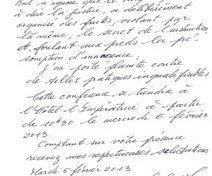 Nul n'ignore que le
a délibérément
organisé des fuites violant par
là même, le secret de l'instruction
et foulant aux pieds la pré-
somption d'innocence.
Je porte plainte contre
de telles pratiques inqualifiables
Cette conférence se tiendra à
l'Hôtel l'Impérature à partir
de 10h30 le mercredi 6 février
2013.
Comptant sur votre présence
recevez mes respectueuses salutations
Mardi 5 février 2013